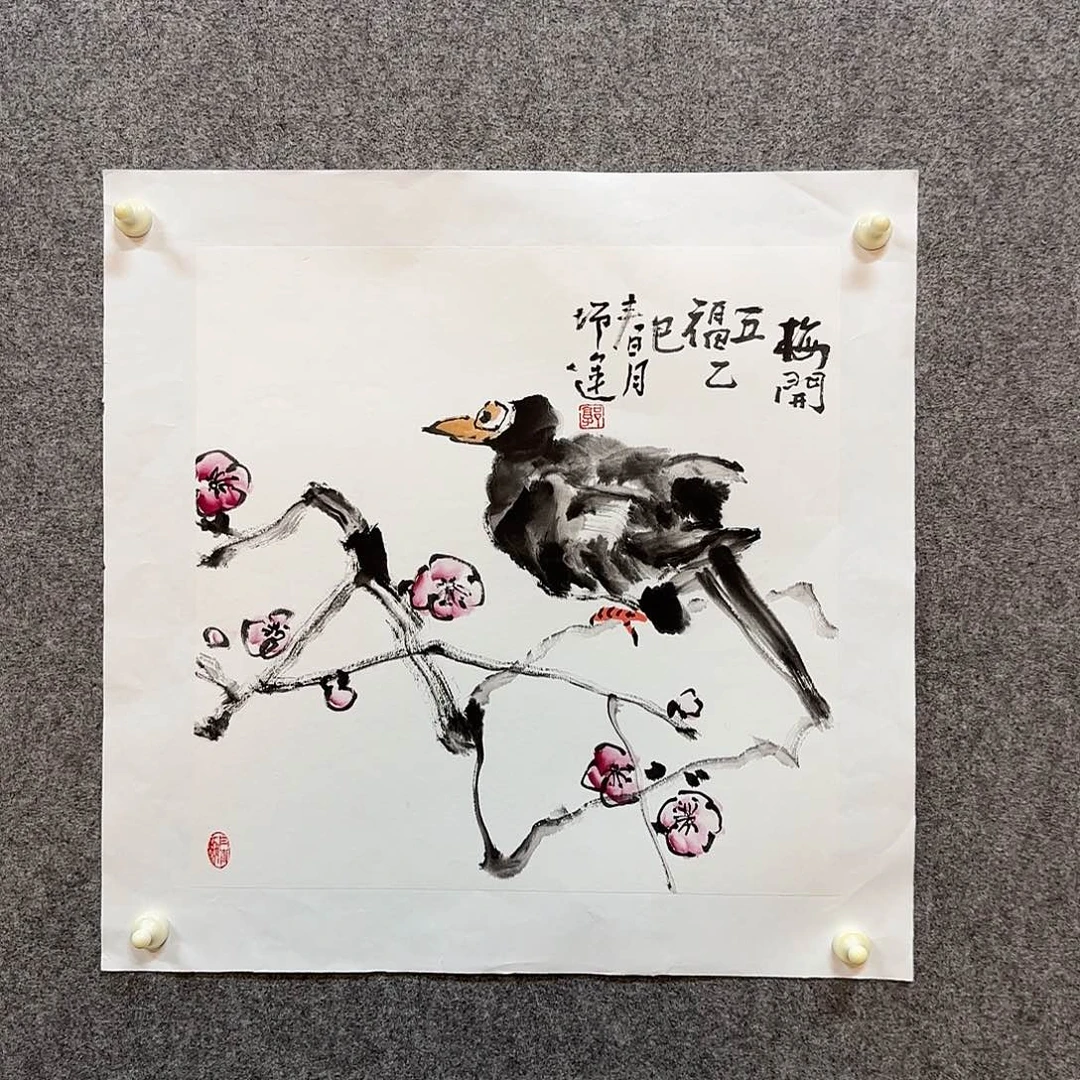 梅開
五
福乙
巳
春月